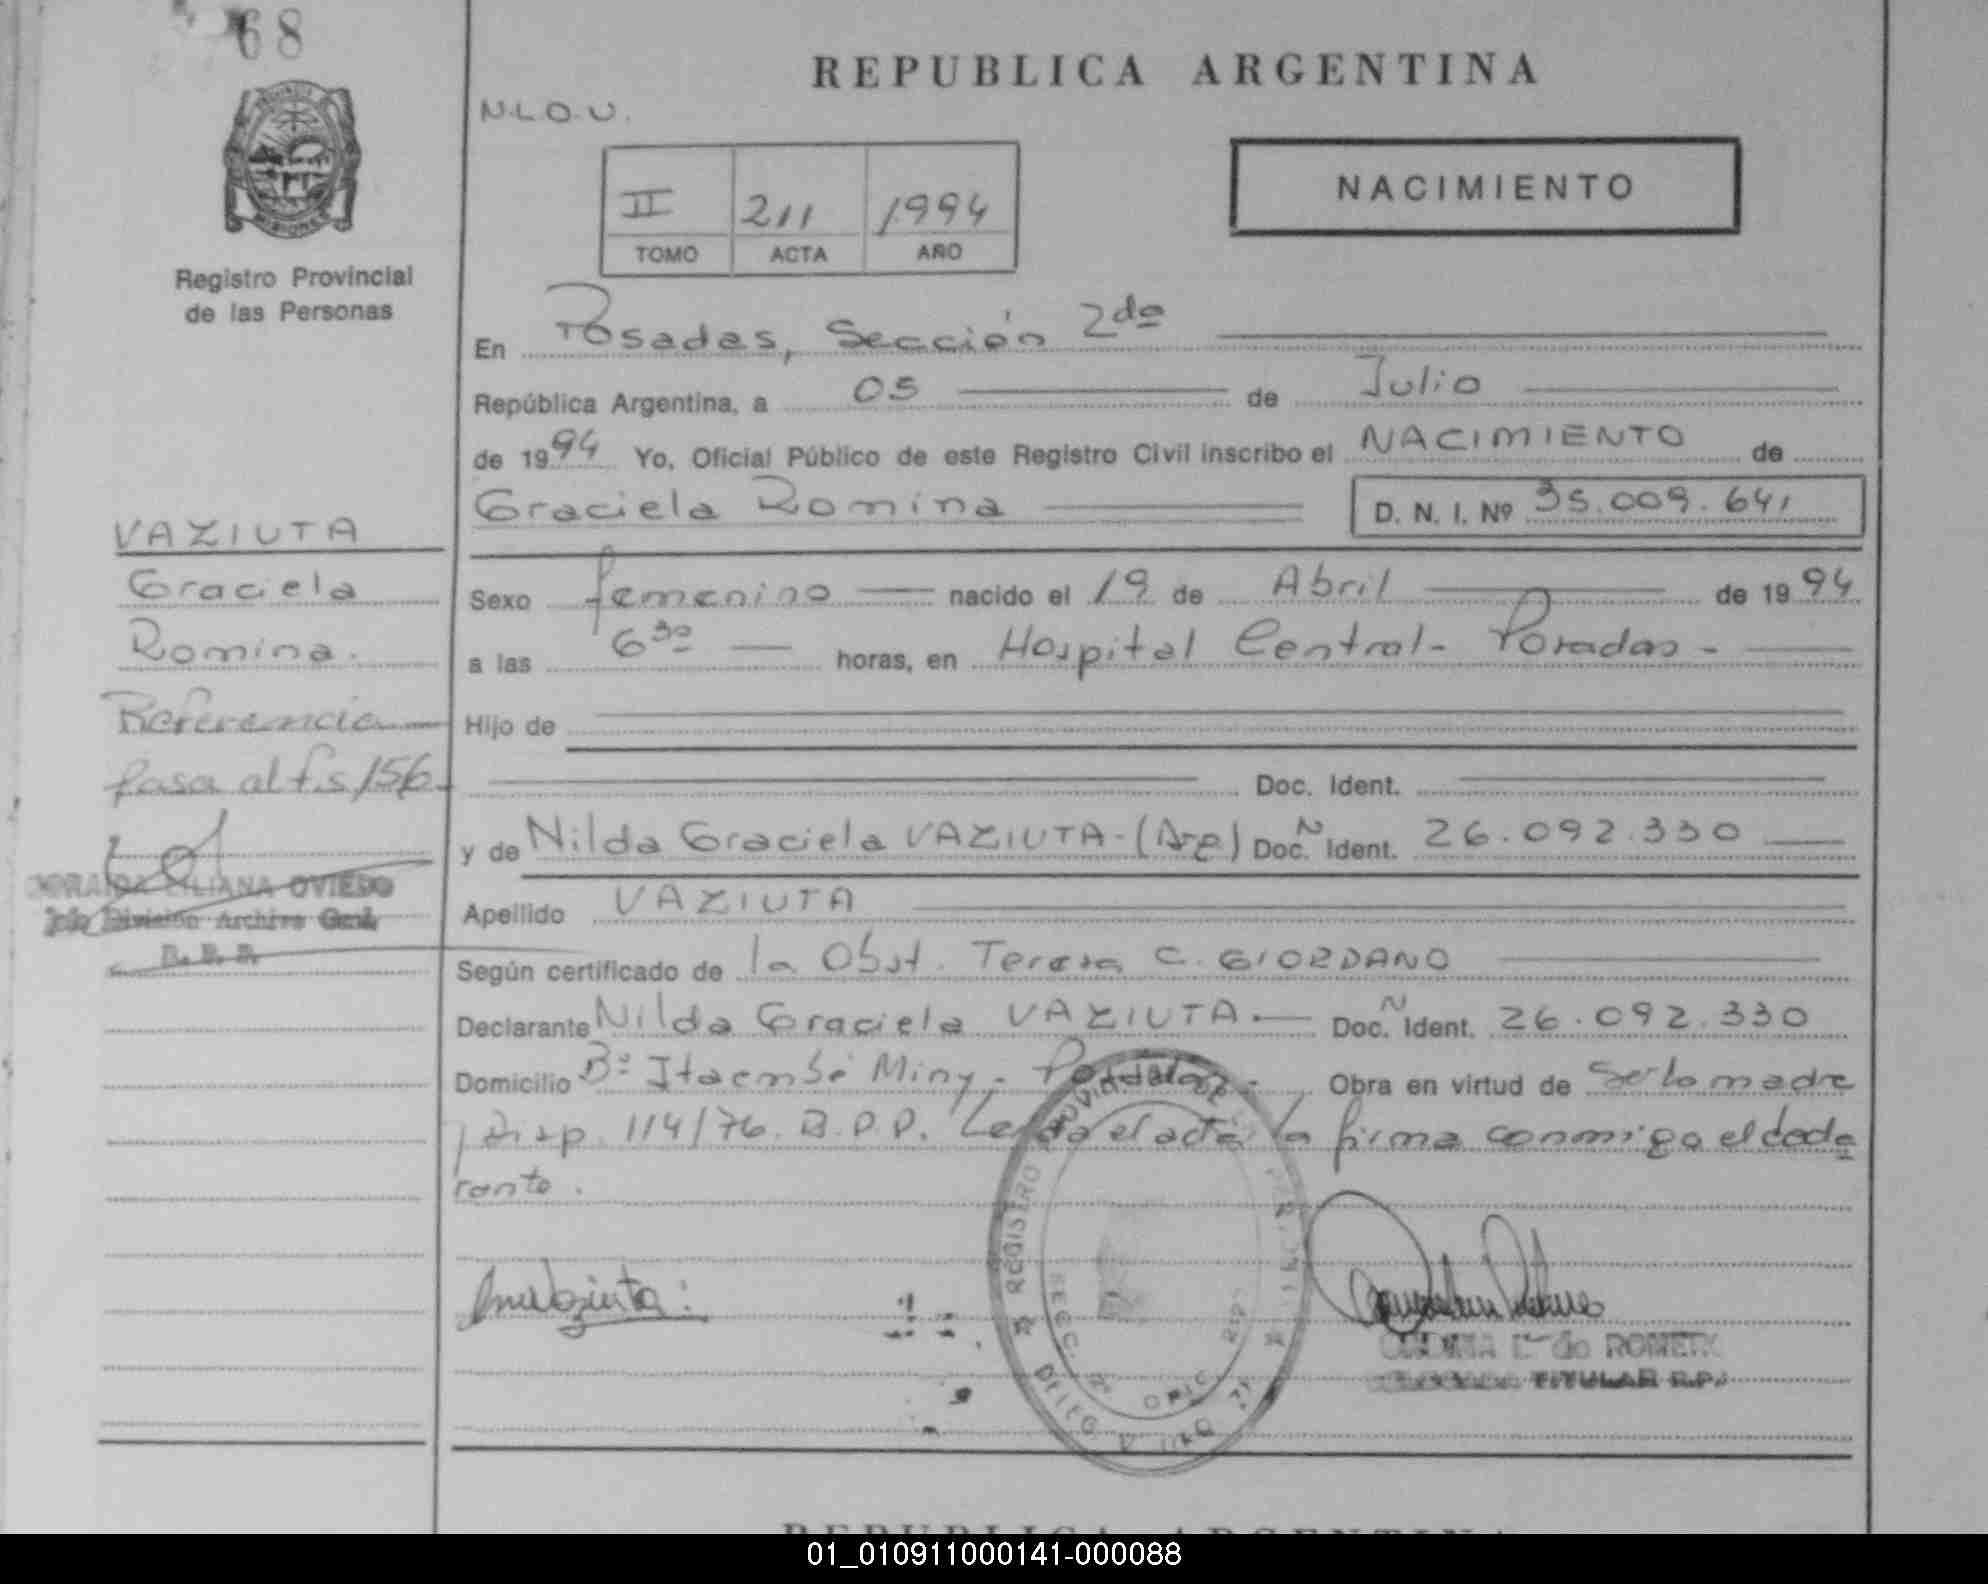 68
REPUBLICA ARGENTINA
N.L.O.U.
II 211 1994
TOMO ACTA AÑO
NACIMIENTO
Registro Provincial
de las Personas
En Posadas, Sección 2da
República Argentina, a 05 de Julio
de 1994 Yo, Oficial Público de este Registro Civil inscribo el NACIMIENTO de
Graciela Romina D. N. I. Nº 35.009.641
VAZIUTA
Graciela
Romina.
Referencia
pasa al fs/56
Sexo femenino nacido el 19 de Abril de 1994
a las 6 30 horas, en Hospital Central - Posadas -
Hijo de
Doc. Ident.
y de Nilda Graciela VAZIUTA - (Arg) Doc. N Ident. 26.092.330
Apellido VAZIUTA
Según certificado de la Obst. Teresa C. GIORDANO
Declarante Nilda Graciela VAZIUTA.- Doc. N Ident. 26.092.330
Domicilio Bº Itaembé Miny - Posadas - Obra en virtud de Ser la madre
y Disp. 114/76. R.P.P. Leída el acta la firma conmigo el decla
rante.
LILIANA OVIEDO
Jefe División Archivo Gral.
R. P. P.
REGISTRO PROVINCIAL DE
SECC. 2ª
de ROMERO
TITULAR R.P.
REPUBLICA ARGENTINA
01_010911000141-000088